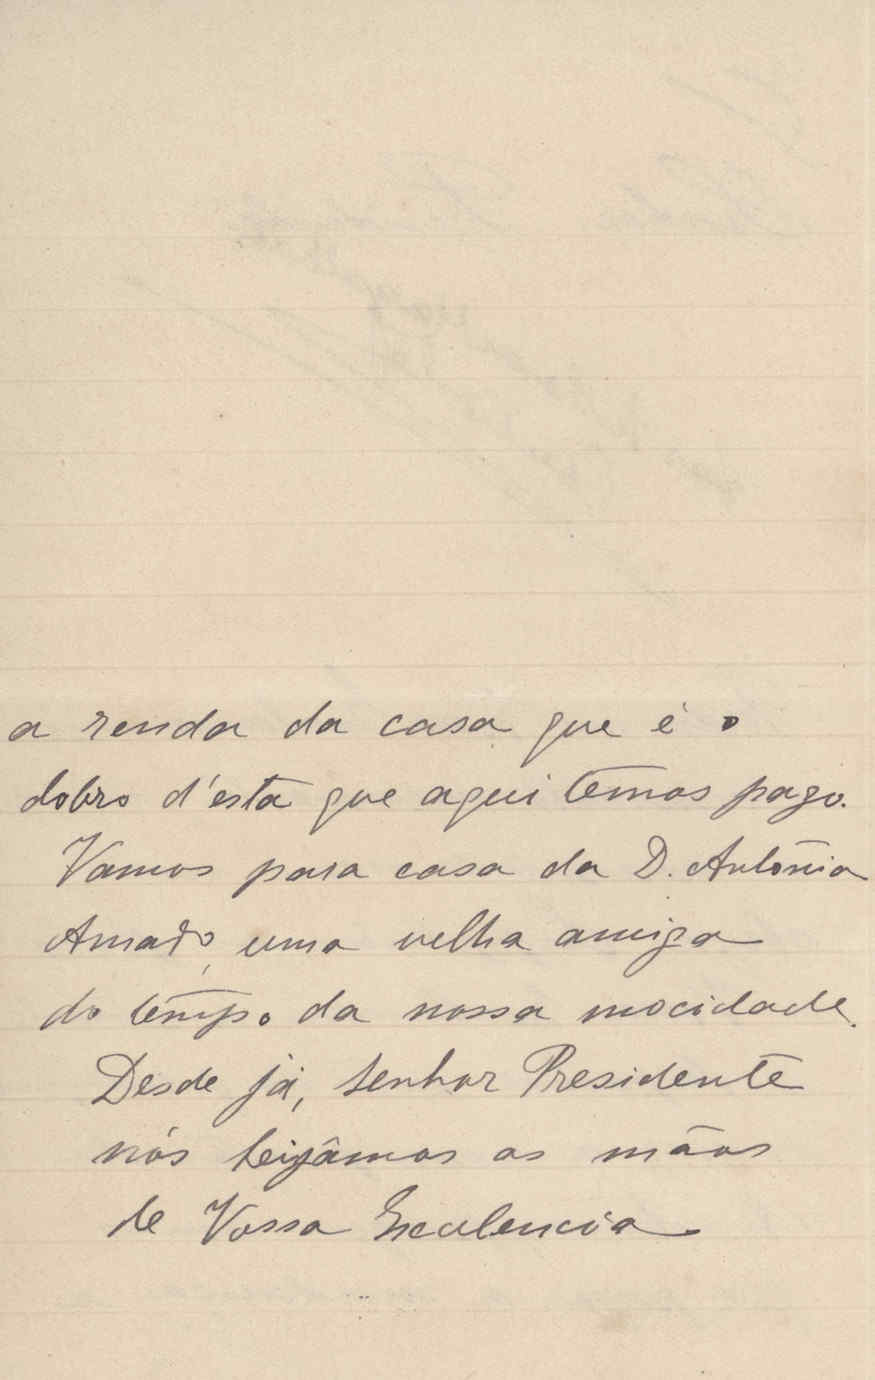 a renda da casa que é o
dobro d'esta que aqui temos pago.
Vamos para casa da D. Antónia
Amado, uma velha amiga
do tempo da nossa mocidade.
Desde já, senhor Presidente
nós beijâmos as mãos
de Vossa Excelencia